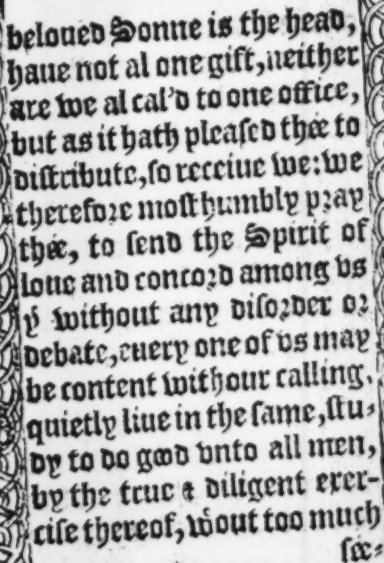 beloued Sonne is the head,
haue not al one gift, neither
are we al cal'd to one office,
but as it hath pleaſed thée to
diſtribute, ſo receiue we: we
therefore moſt humbly pray
thée, to ſend the Spirit of
loue and concord among vs
ẏ without any diſorder or
debate, euery one of vs may
be content with our calling,
quietly liue in the ſame, ſtu⸗
dy to do good vnto all men,
by the true & diligent exer-
ciſe thereof, wͦout too much
ſée⸗